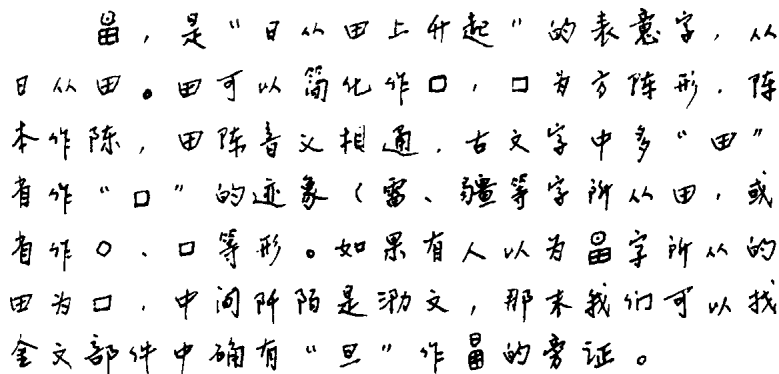 ，是“日从田上升起”的表意字，从
日从田。田可以简化作口，口为方阵形．陈
本作陈，田陈音义相通．古文字中多“田”
省作“口”的迹象（雷、疆等字所从田，或
省作○、口等形。如果有人以为字所从的
田为口，中间阡陌是泐文，那末我们可以找
金文部件中确有“旦”作的旁证。